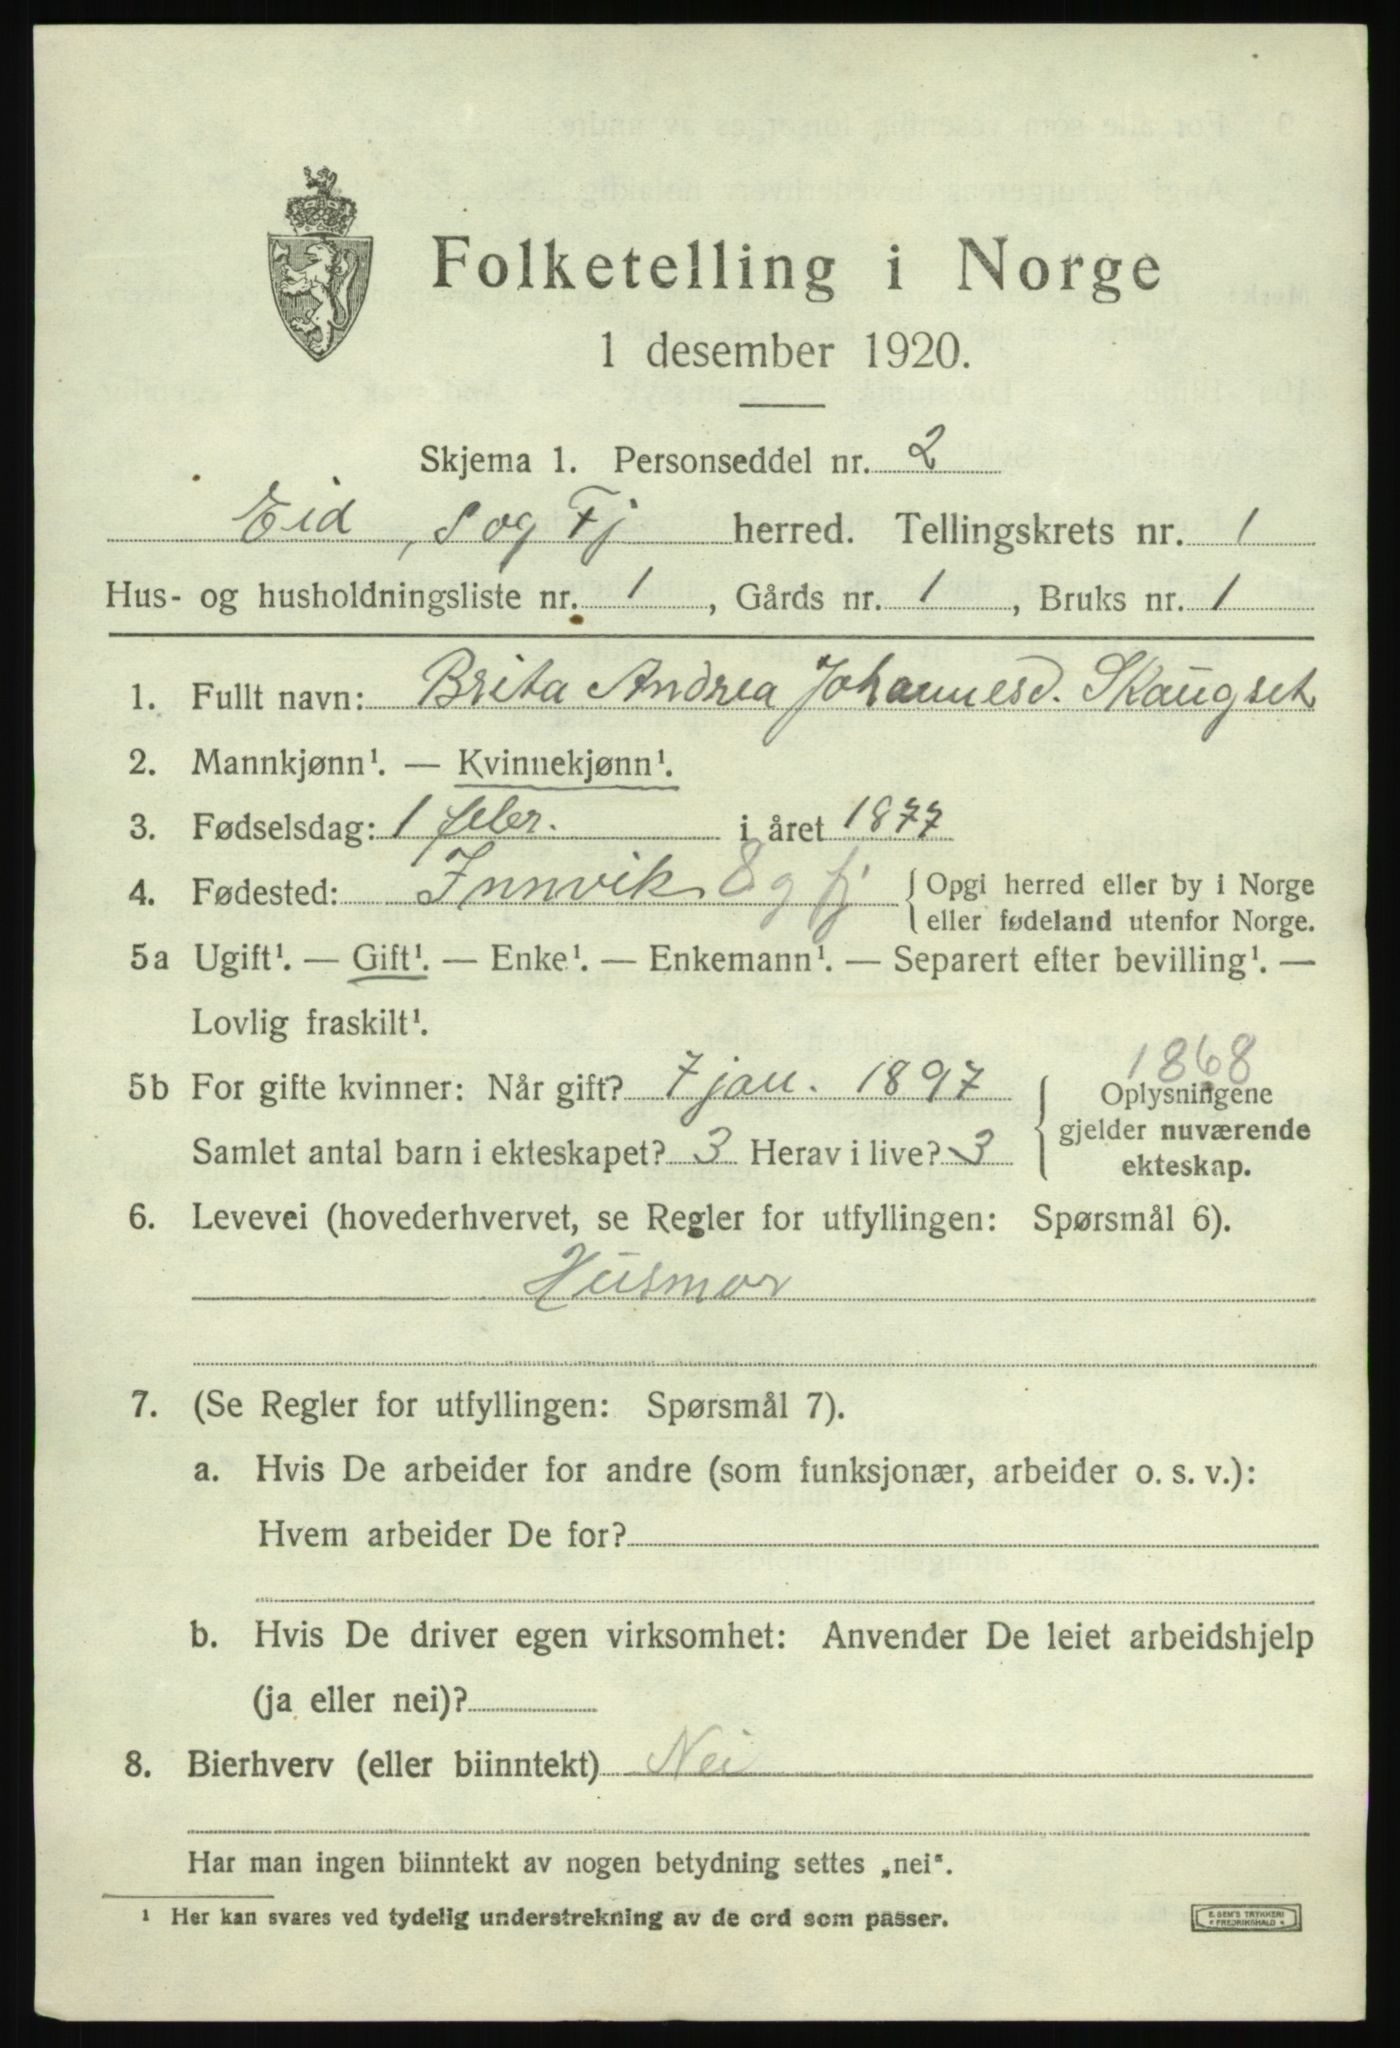 Folketelling i Norge
1 desember 1920.
Skjema 1. Personseddel nr. 2
Eid, S og Fj herred. Tellingskrets nr. 1
Hus- og husholdningsliste nr. 1, Gårds nr. 1, Bruks nr. 1
1. Fullt navn: Brita Andrea Johannesd. Skaugset
2. Mannkjønn¹. — Kvinnekjønn¹.
3. Fødselsdag: 1 febr. i året 1877
4. Fødested: Innvik S og fj { Opgi herred eller by i Norge
eller fødeland utenfor Norge.
5a Ugift¹. — Gift¹. — Enke¹. — Enkemann¹. — Separert efter bevilling¹. —
Lovlig fraskilt¹.
1868
5b For gifte kvinner: Når gift? 7 jan. 1897 { Oplysningene
gjelder nuværende
Samlet antal barn i ekteskapet? 3 Herav i live? 3 ekteskap.
6. Levevei (hovederhvervet, se Regler for utfyllingen: Spørsmål 6).
Husmor
7. (Se Regler for utfyllingen: Spørsmål 7).
a. Hvis De arbeider for andre (som funksjonær, arbeider o. s. v.):
Hvem arbeider De for?
b. Hvis De driver egen virksomhet: Anvender De leiet arbeidshjelp
(ja eller nei)?
8. Bierhverv (eller biinntekt) Nei
Har man ingen biinntekt av nogen betydning settes „nei".
¹ Her kan svares ved tydelig understrekning av de ord som passer.
E. SEM'S TRYKKERI
* FREDRIKSHALD *